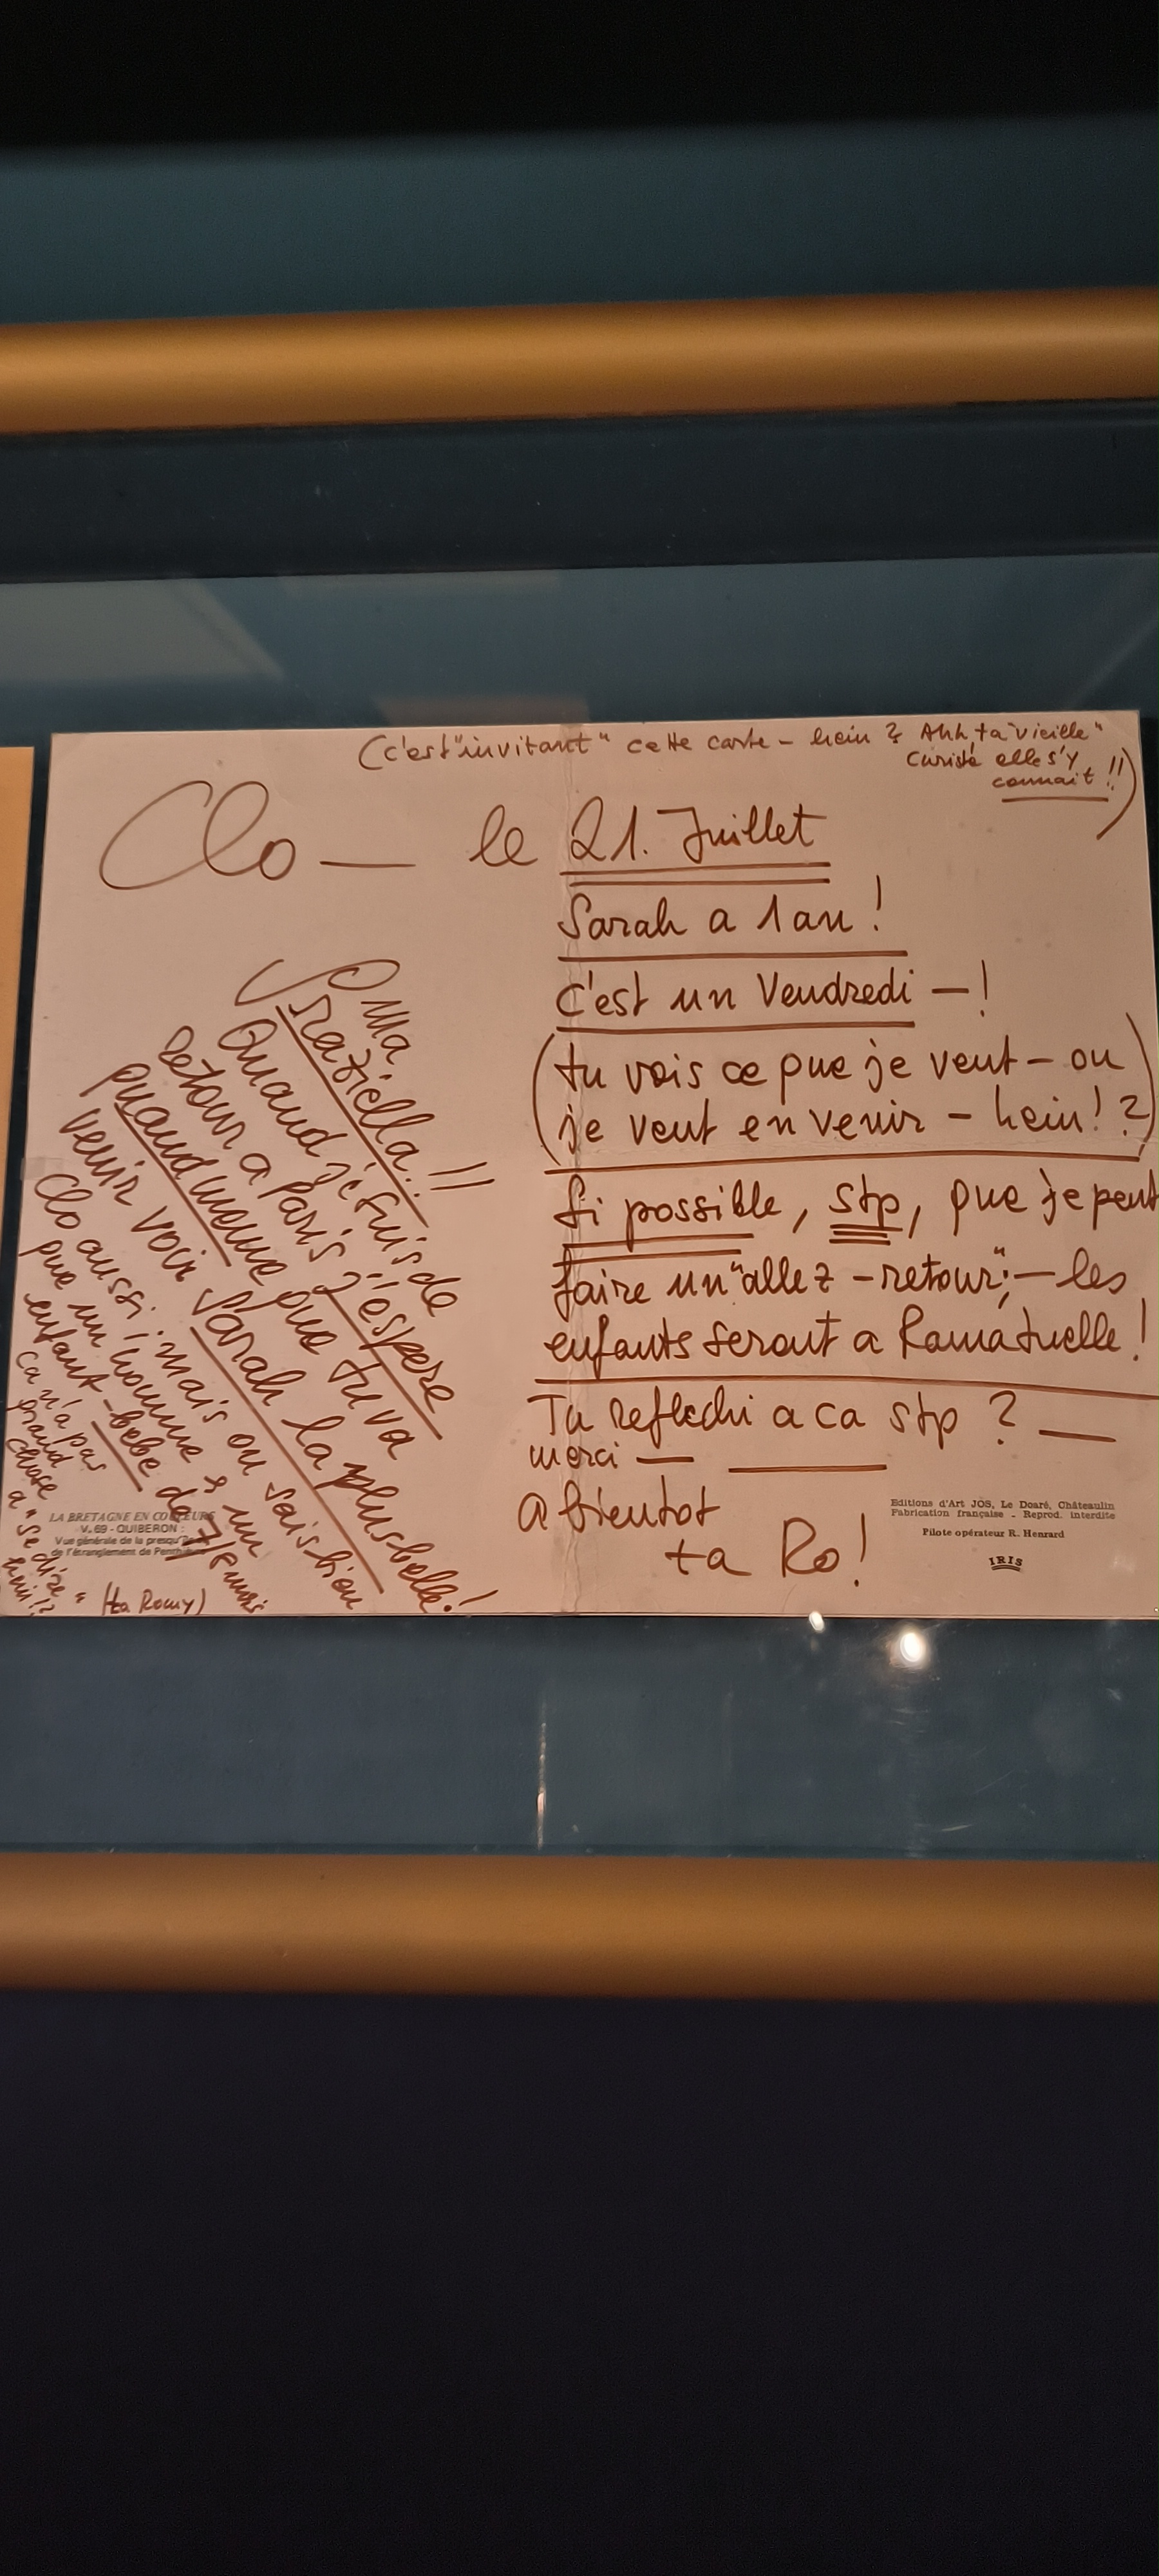 (c'est "invitant" cette carte - hein ? Ahh ta "vieille"
curiste elle s'y
connait !!)
Clo — le 21. Juillet
Sarah a 1 an !
c'est un Vendredi — !
(tu vois ce que je veut - ou
je veut en venir - hein ! ?)
Si possible, stp, que je peut
faire un "allez - retour"; — les
enfants seront a Ramatuelle !
Tu reflechi a ca stp ? —
merci —
a bientot
ta Ro !
O ma
Graziella.. !!
Quand je suis de
retour a Paris j'espere
quand meme que tu va
venir voir Sarah la plus belle !
Clo aussi, mais on sais bien
que un homme & un
enfant - bebe de 7/8 mois
ca n'a pas
grand
chose
a "se dire"
hein !?
(ta Romy)
LA BRETAGNE EN COULEURS
V. 69 - QUIBERON :
Vue générale de la presqu'île
de l'étranglement de Penthièvre
Editions d'Art JOS, Le Doaré, Châteaulin
Fabrication française - Reprod. interdite
Pilote opérateur R. Henrard
IRIS